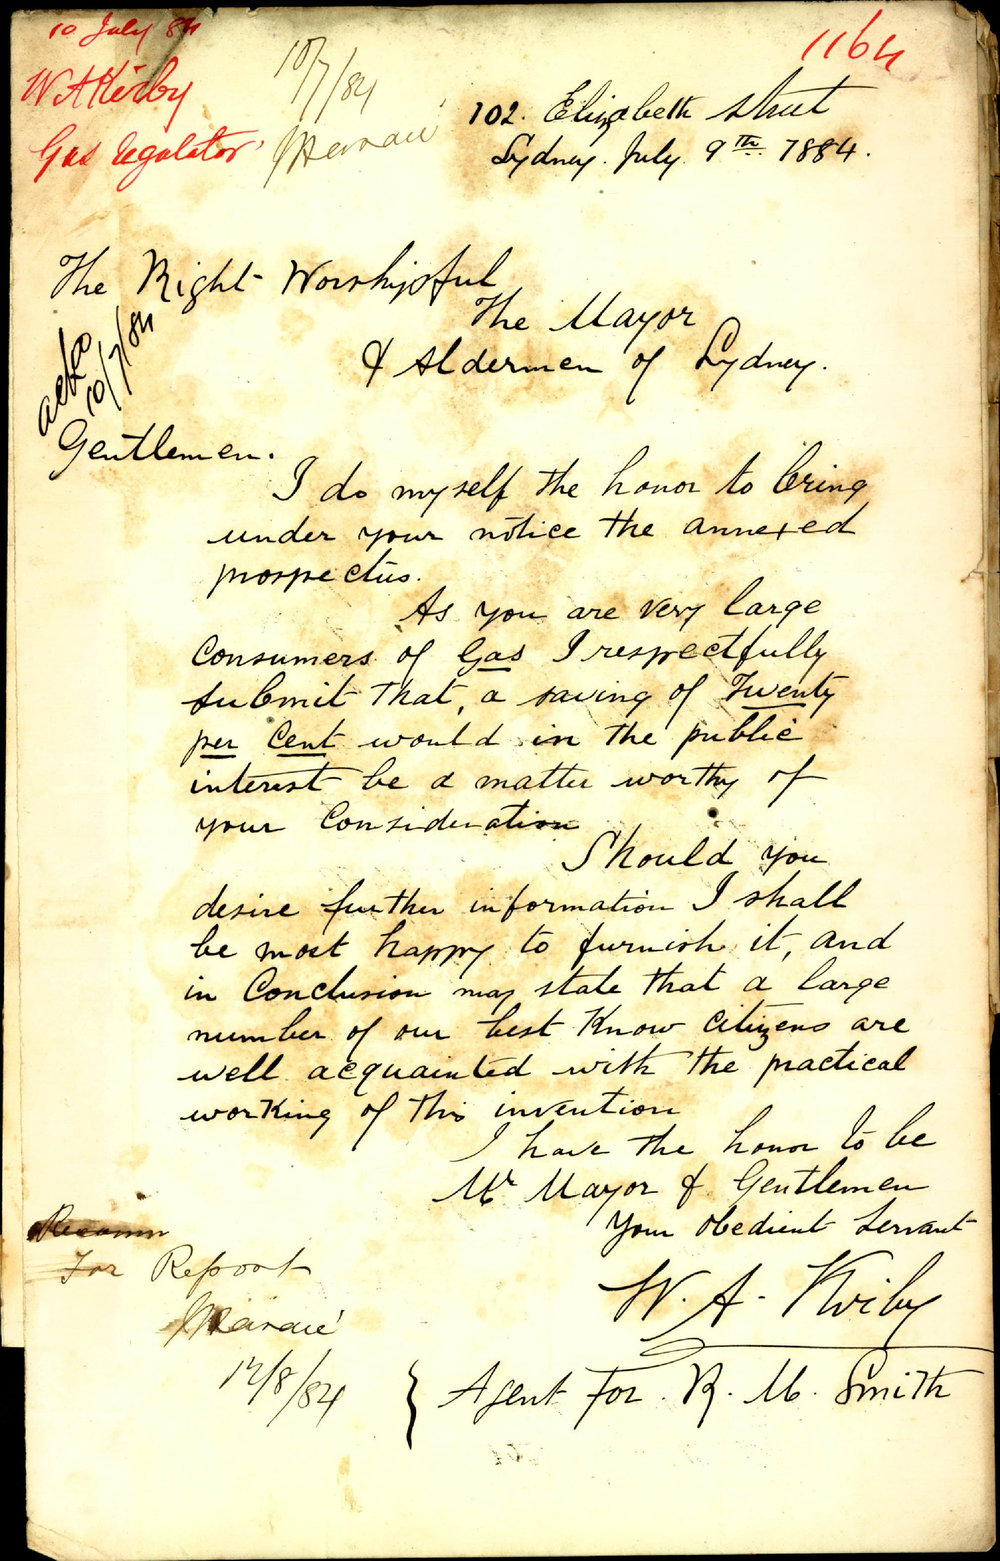 10 July 84
W A Kirby
Gas regulator
1164
10/7/84
102. Elizabeth Street
Sydney. July. 9th 1884.
The Right Worshipful
The Mayor
& Aldermen of Sydney.
10/7/84
Gentlemen.
I do myself the honor to bring
under your notice the annexed
prospectus.
As you are very large
Consumers of Gas I respectfully
submit that, a saving of Twenty
per Cent would in the public
interest be a matter worthy of
your Consideration
Should you
desire further information I shall
be most happy to furnish it, and
in Conclusion may state that a large
number of our best Know Citizens are
well acquainted with the practical
working of this invention
I have the honor to be
Mr Mayor & Gentlemen
Your obedient Servant
W. A. Kirby
Agent For. R. M. Smith
For Report
12/8/84